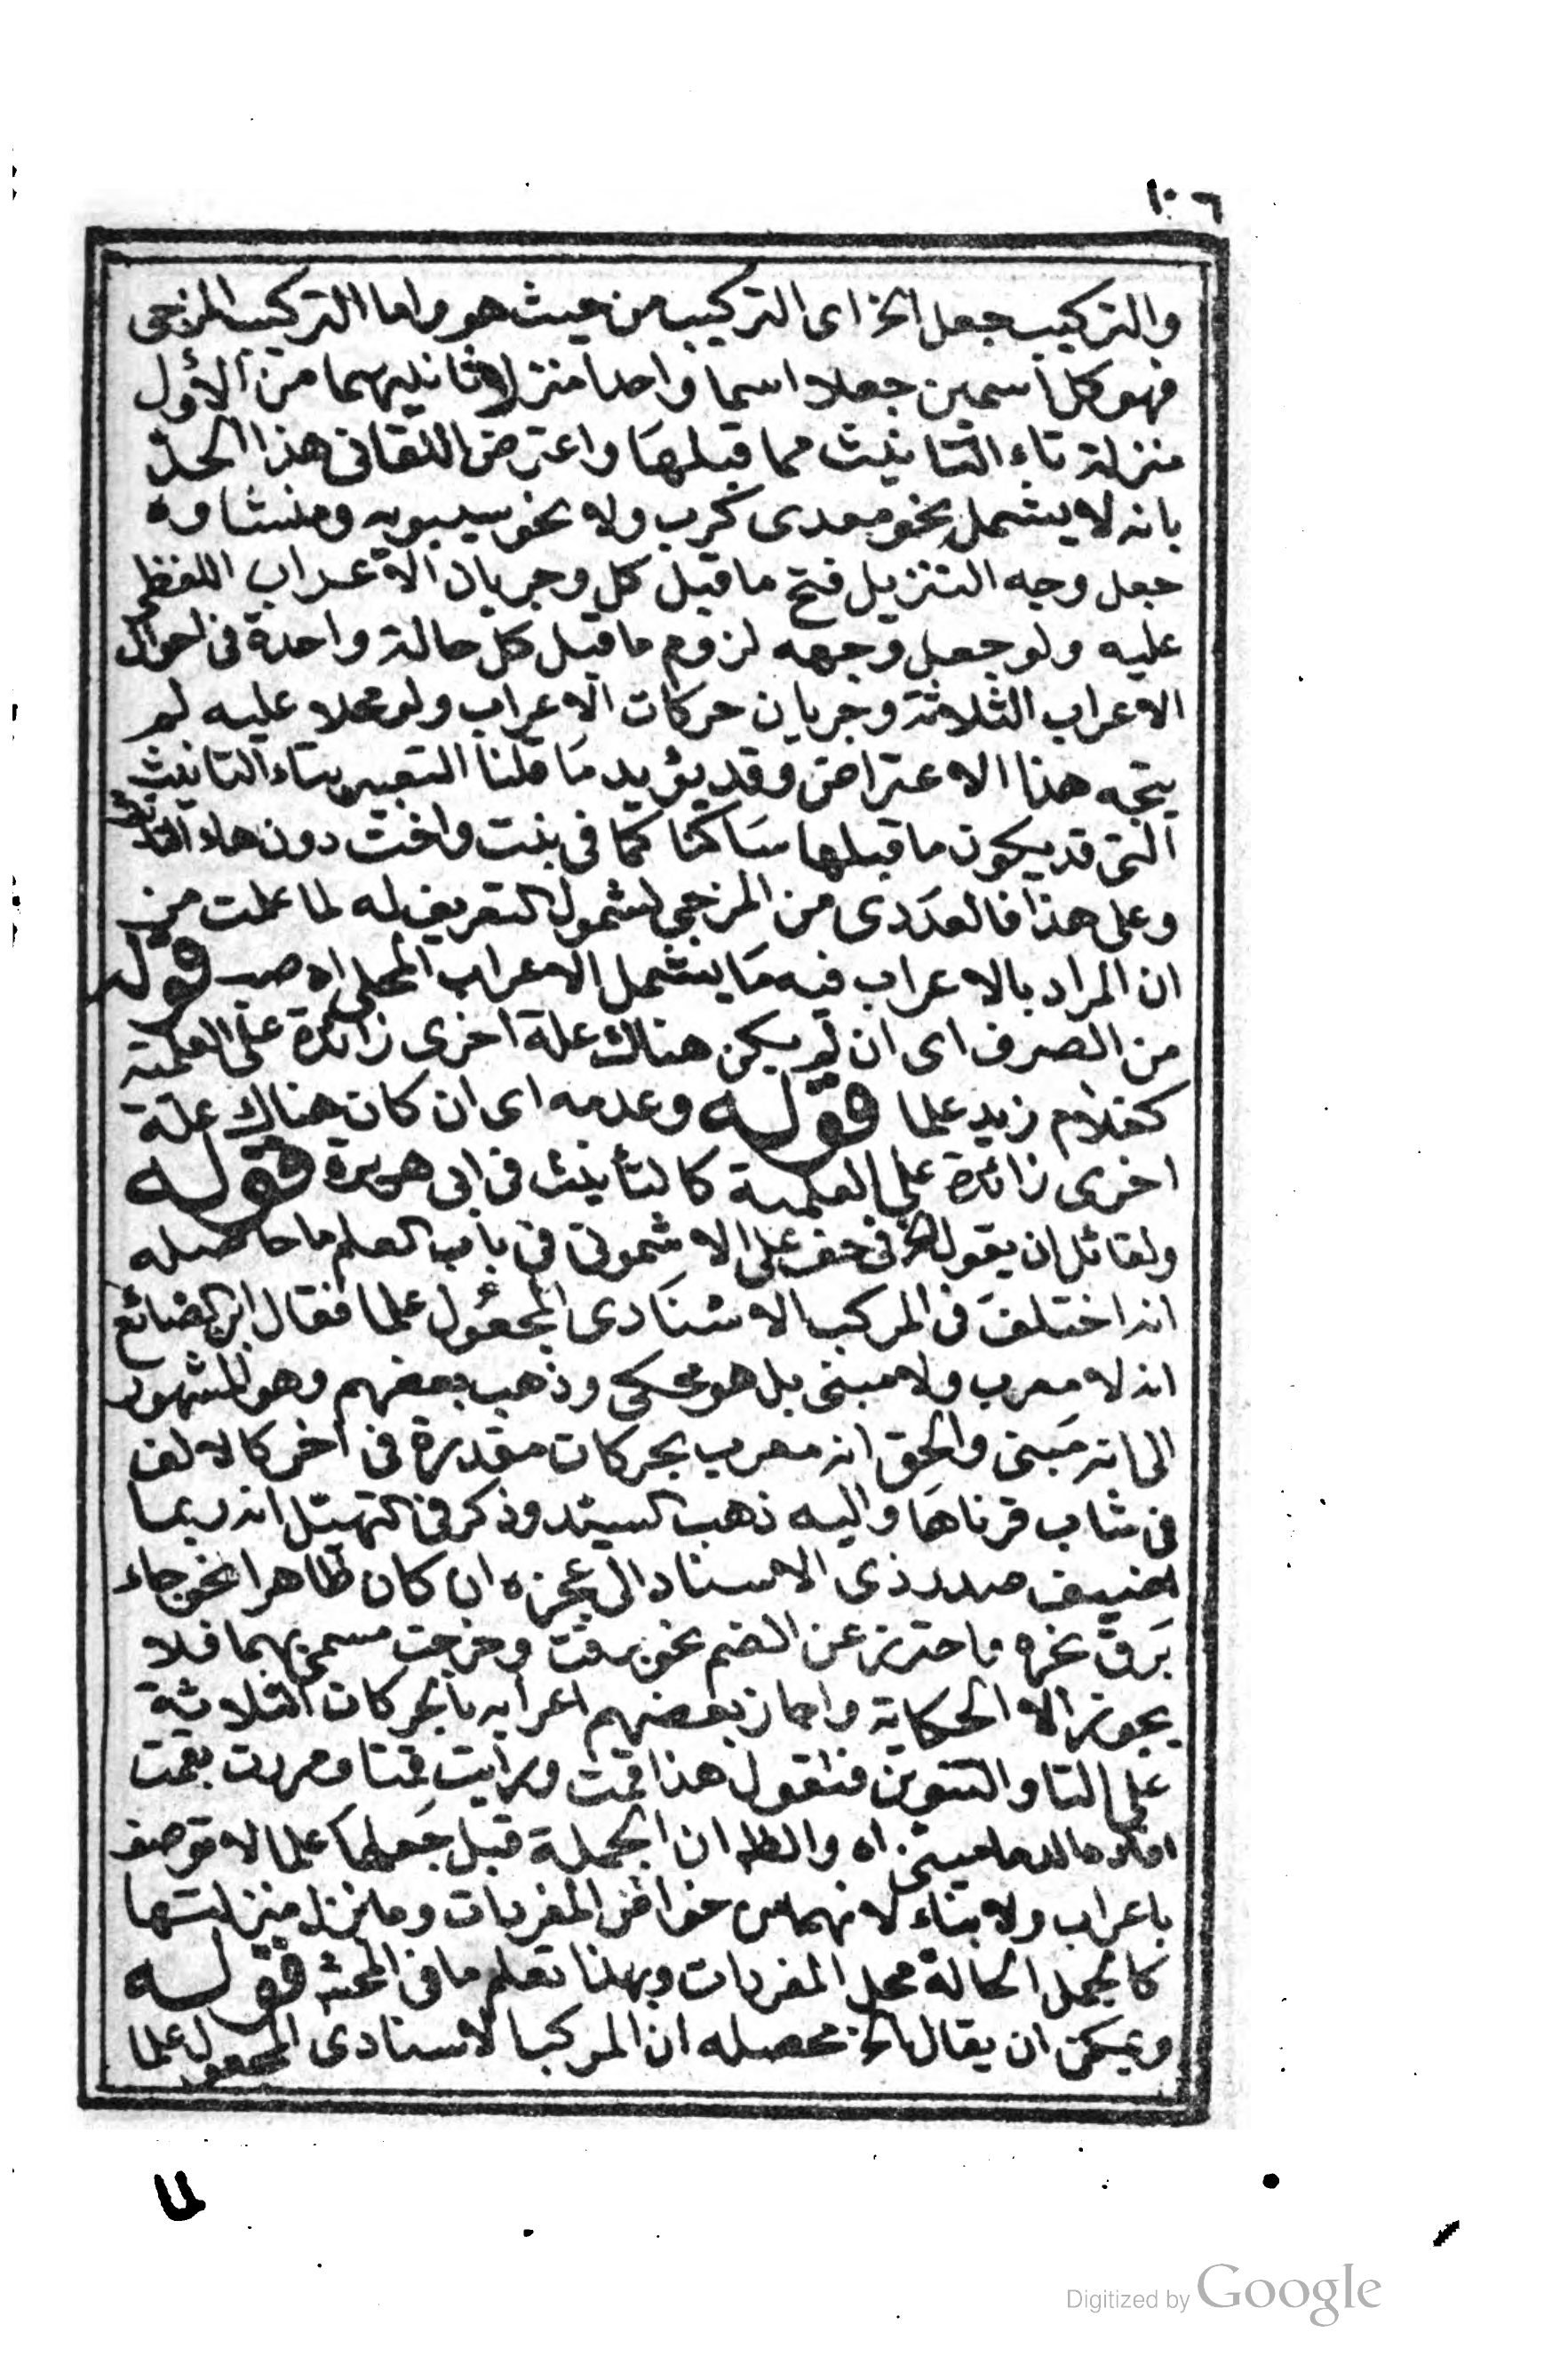 ١٠٦
والتركيب جعل الخ اى التركيب من حيث هو واما التركيب المزجى
فهو كل اسمين جعلا اسما واحدا منزلا ثانيهما من الأول
منزلة تاء التانيث مما قبلها واعترض اللقانى هذا الحد
بانه لا يشمل نحو معدى كرب ولا نحو سيبويه ومنشاوه
جعل وجه التنزيل فتح ما قبل كل وجريان الاعراب اللفظى
عليه ولو جعل وجهه لزوم ما قبل كل حالة واحدة فى احوال
الاعراب الثلاثة وجريان حركات الاعراب ولو محلا عليه لم
يتجه هذا الاعتراض وقد يؤيد ما قلنا التعبير بتاء التانيث
التى قد يكون ما قبلها ساكنا كما فى بنت واخت دون هاء التانيث
وعلى هذا فالعددى من المزجى لشمول التعريف له لما علمت من
ان المراد بالاعراب فيه ما يشمل الاعراب المحلى اه صب قوله
من الصرف اى ان لم يكن هناك علة اخرى زائدة على العلمية
كغلام زيد علما قوله وعدمه اى ان كان هناك علة
اخرى زائدة على العلمية كالتأنيث فى ابى هريرة قوله
ولقائل ان يقول الخ فى حف على الاشمونى فى باب العلم ما حاصله
انه اختلف فى المركب الاسنادى المجعول علما فقال ابن الضائع
انه لا معرب ولا مبنى بل هو محكى وذهب بعضهم وهو المشهور
الى انه مبنى والحق انه معرب بحركات مقدرة فى اخر كالالف
فى شاب قرناها واليه ذهب السيد وذكر فى التهيل انه ربما
اضيف صدر ذى الاسناد الى عجزه ان كان ظاهرا نحو جاء
برق نحره واحترز عن الضم نحو برقت وخرجت مسمى بهما فلا
يجوز الا الحكاية واجاز بعضهم اعرابه بالحركات الثلاثة
على التا والتنوين فتقول هذا قمت ورايت قمتا ومررت بقمت
افاده الدمامينى اه والظا ان الجملة قبل جعلها علما لا توصف
باعراب ولا بناء لانهما من خواص المفردات وما نزل منزلتها
كالجمل الحالة محل المفردات وبهذا تعلم ما فى المحشه قوله
ويمكن ان يقال الخ محصله ان المركب الاسنادى المجعول علما
Digitized by Google